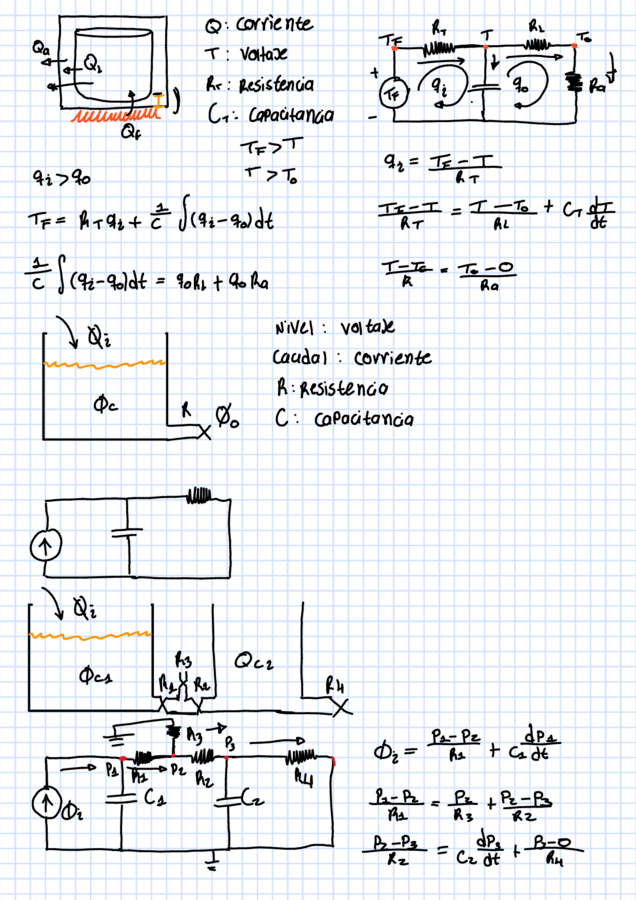 Q: Corriente
T: Voltaje
R_T: Resistencia
C_T: Capacitancia
T_F > T
T > T_o
Q_a
Q_L
Q_f
T_F
T
T_o
R_T
R_L
R_a
+
T_F
-
q_i
q_o
q_i > q_o
T_F = R_T q_i + 1/C ∫(q_i - q_o)dt
1/C ∫(q_i - q_o)dt = q_o R_L + q_o R_a
q_i = (T_F - T)/R_T
(T_F - T)/R_T = (T - T_o)/R_L + C_T dT/dt
(T - T_o)/R = (T_o - 0)/R_a
Q_i
Φ_c
R
Φ_o
Nivel: voltaje
Caudal: corriente
R: Resistencia
C: Capacitancia
Q_i
Φ_c1
R_1
R_3
R_2
Q_c2
R_4
R_3
P_1
R_1
P_2
R_2
P_3
R_4
Φ_i
C_1
C_2
Φ_i = (P_1 - P_2)/R_1 + C_1 dP_1/dt
(P_1 - P_2)/R_1 = P_2/R_3 + (P_2 - P_3)/R_2
(P_2 - P_3)/R_2 = C_2 dP_3/dt + (P_3 - 0)/R_4